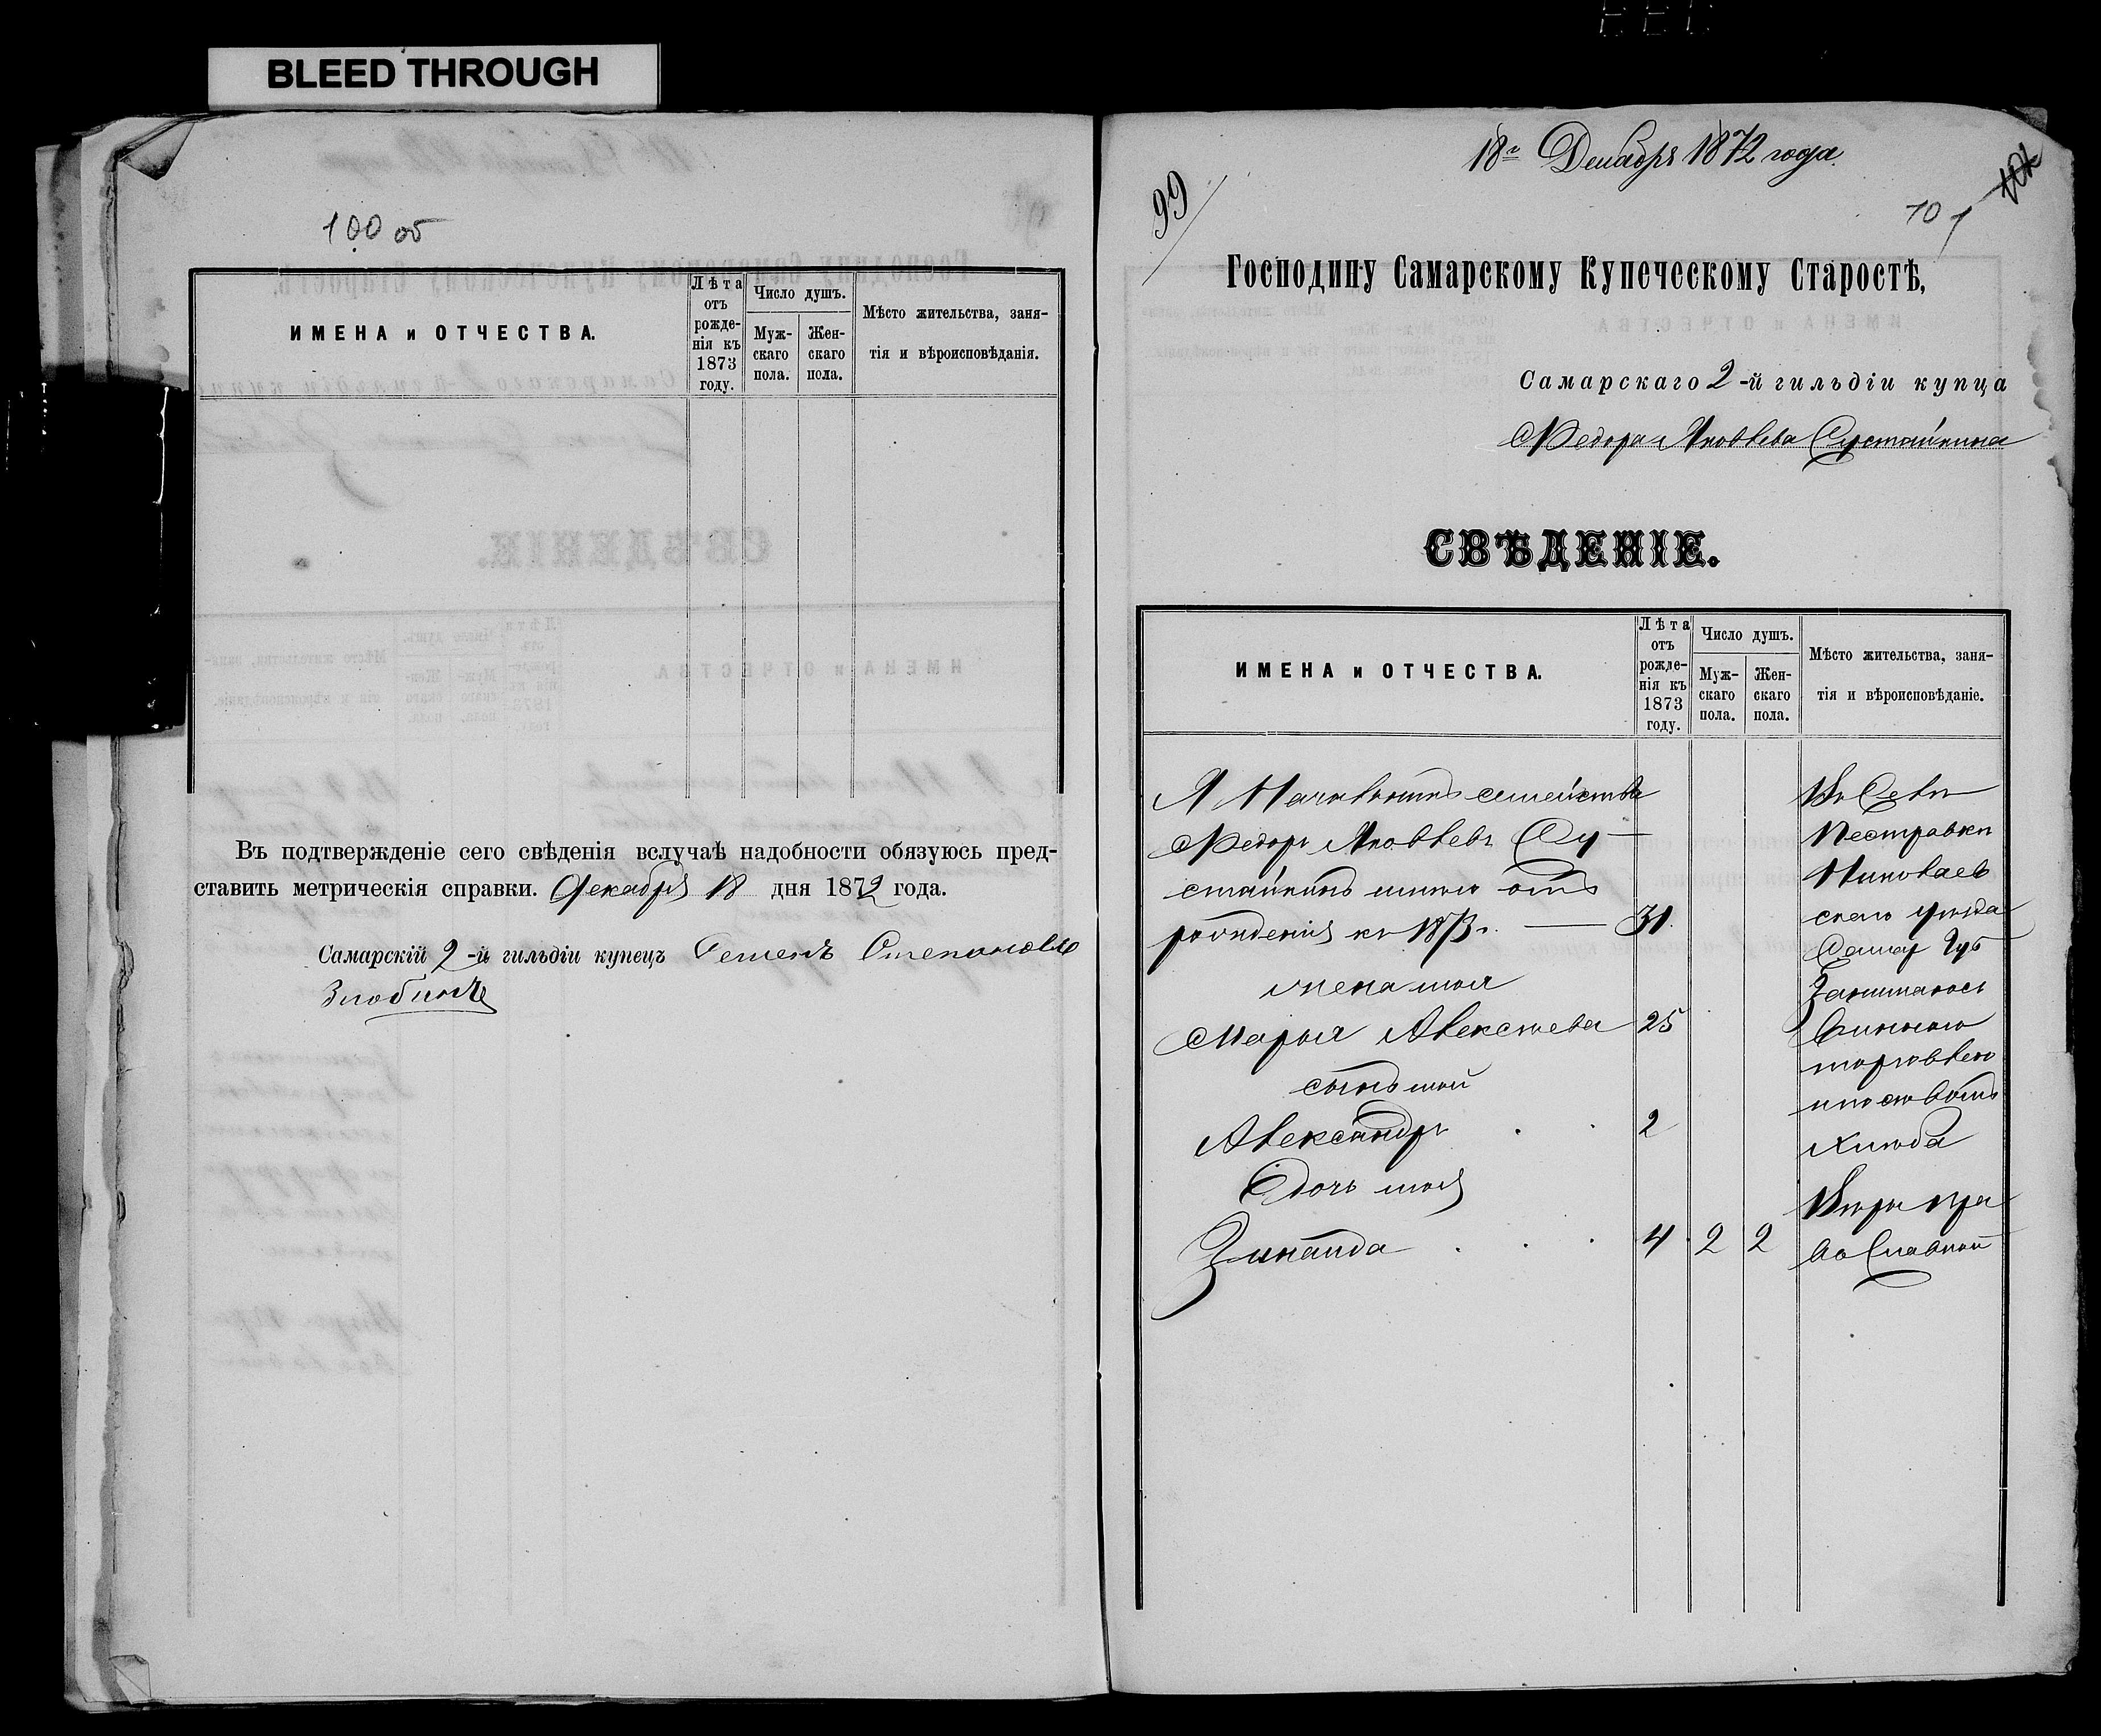 BLEED THROUGH
100 об
ИМЕНА и ОТЧЕСТВА.
Лѣта отъ рожденія къ 1873 году.
Число душъ.
Мужскаго пола.
Женскаго пола.
Мѣсто жительства, заня-
тія и вѣроисповѣданія.
Въ подтвержденіе сего свѣденія вслучаѣ надобности обязуюсь пред-
ставить метрическія справки. Декабря 18 дня 1872 года.
Самарскій 2-й гильдіи купецъ Семенъ Степановъ
Злобинъ
18го Декабря 1872 года
99
101
Господину Самарскому Купеческому Старостѣ,
Самарскаго 2-й гильдіи купца
Федора Яковлева Сустайкина
СВѢДЕНІЕ.
ИМЕНА и ОТЧЕСТВА.
Лѣта
отъ
рожде-
нія къ
1873
году.
Число душъ.
Муж-
скаго
пола.
Жен-
скаго
пола.
Мѣсто жительства, заня-
тія и вѣроисповѣданіе.
Я Начальникъ семейства
Федоръ Яковлевъ Су
стайкинъ имѣю отъ
рожденія къ 1873 г. 31
жена моя
Марья Алексѣева 25
сынъ мой
Александръ 2
Дочь моя
Зинаида 4 2 2
Въ Селѣ
Пестравки
Николаев
скаго уѣзда
Самар Губ
Занимаюсь
Винною
торговлею
и посѣвомъ
хлѣба
Вѣры пра
вославной